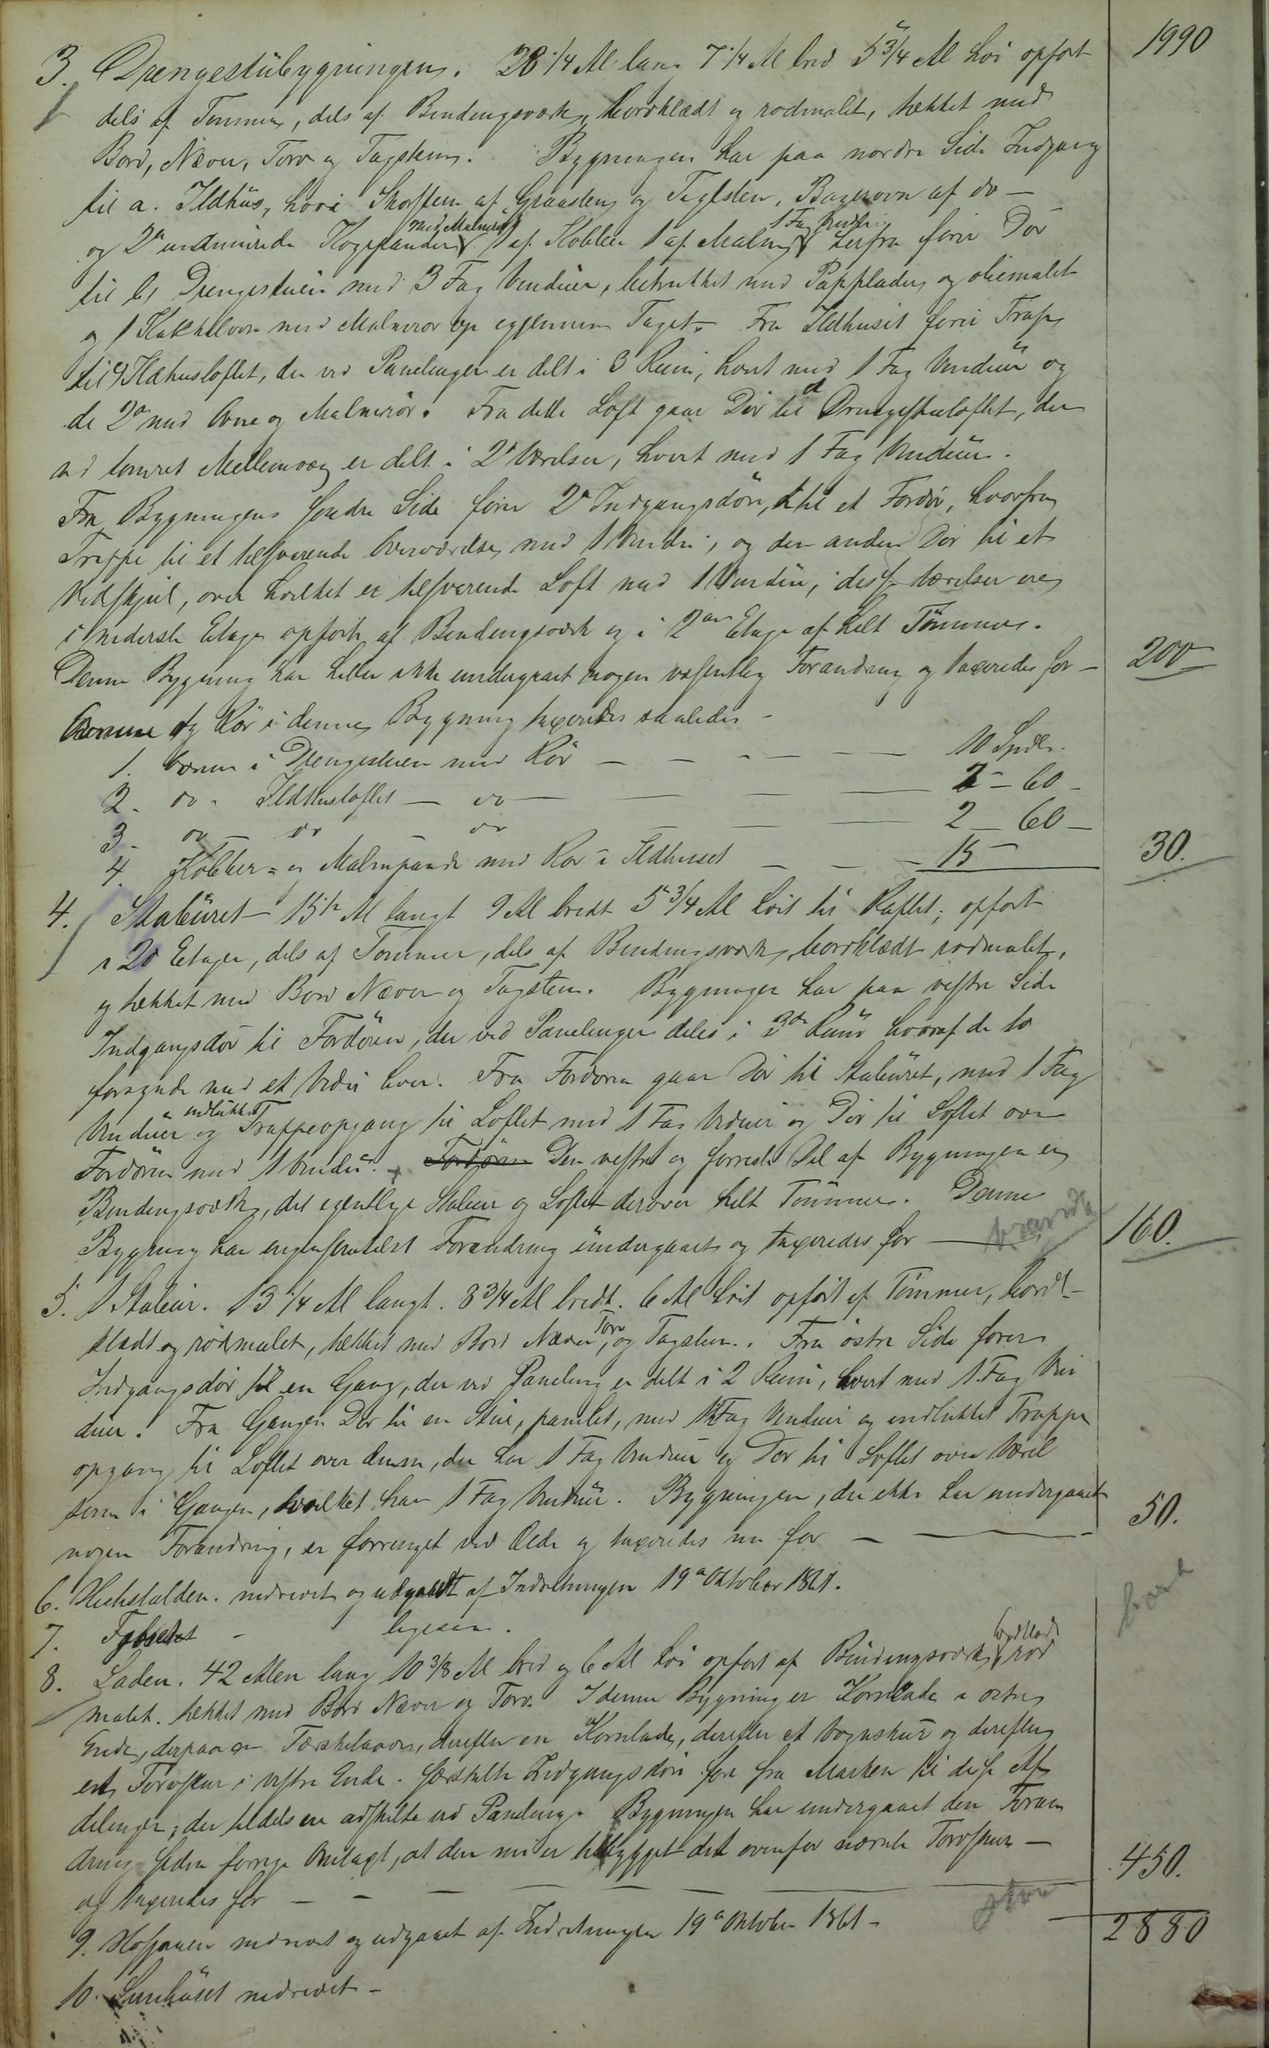 1990
3. Drengestubygningen. 28 1/4 Al lang 7 1/4 Al bred 5 3/4 Al høi opført
dels af Tømmer, dels af Bindingsværk, bordklædt og rødmalet, tækket med
Bord, Næver, Torv og Tagsteen. Bygningen har paa nordre Side Indgang
til a. Ildhus, hvori Skorsteen af Graasteen og Taglsten, Bagerovn af do –
og 2de indmurede Kogepander med Malmrør 1 af Kobber 1 af Malm 1 Fag Vinduer herfra fører Dør
til b) Drengestuen med 3 Fag Vinduer, betrukket med Papplader og oliemalet
og 1 Kakkelovn med Malmrør op gjennem Taget. Fra Ildhuset fører Trap
til c) Ildhusloftet, der ved Panelinger er delt i 3 Rum, hvert med 1 Fag Vinduer og
de 2de med Ovne og Malmrør. Fra dette Loft gaar Dør til d Drengestueloftet, der
ved tømret Mellemvæg er delt i 2de Værelser, hvert med 1 Fag Vinduer.
Fra Bygningens søndre Side fører 2de Indgangsdøre, 1 til et Fordør, hvorfra
Trappe til et tilsvarende Overværelse med 1 Vindu, og den anden Dør til et
Vedskjul, over hvilket er tilsvarende Loft med 1 Vindue, disse Værelser ere
i nederste Etage opført af Bindingsværk og i 2den Etage af helt Tømmer.
Denne Bygning har heller ikke undergaaet nogen væsentlig Forandring og taxeredes for – 200
Ovnene og Rør i denne Bygning taxeredes saaledes –
1. Ovnen i Drengestuen med Rør – – – – 10 Spdlr.
2. do – Ildhusloftet – do – – – 2 – 60 –
3. do do do – – 2 – 60 –
4. Kobber= og Malmpande med Rør i Ildhuset – – – 15 – 30.
4. Stabüret – 15 1/2 Al langt 9 Al bredt 5 3/4 Al høit til Raftet; opført
i 2de Etager, dels af Tømmer, dels af Bindingsværk, bordklædt rødmalet,
og tækket med Bord Næver og Tagsten. Bygningen har paa vestre Side
Indgangsdør til Fordøren, der ved Panelinger deles i Rum hvoraf de to
forsynede med et Vindu hver. Fra Fordøren gaar Dør til Stabüret, med 1 Fag
Vinduer og indlukket Trappeopgang til Loftet med 1 Fag Vinduer og Dør til Loftet over
Fordøren med 1 Vindu. Fordøren Den vestre og forreste Del af Bygningen er
Bindingsværk, det egentlige Stabur og Loftet derover helt Tømmer. Denne
Bygning har Forandring undergaaet og taxeredes for – 160.
5. 1 Stabür. 13 1/4 Al langt. 8 3/4 Al bredt. 6 Al høit opført af Tømmer, bord-
klædt og rødmalet, tækket med Bord Næver, Torv og Tagsteen. Fra østre Side fører
Indgangsdør til en Gang, der ved Paneling er delt i 2 Rum, hvert med 1 Fag Vin
duer. Fra Gangen Dør til en Stue, panelet, med Fag Vinduer og indlukket Trappe
opgang til Loftet over denne, der har 1 Fag Vinduer og Dør til Loftet over Værel
serne i Gangen, hvilket har 1 Fag Vinduer. Bygningen, der ikke har undergaaet
nogen Forandring, er forringet ved Ælde og taxeredes nu for – 50.
6. Hestestalden. nedrevet og udgaaet af Indretningen 19de Oktober 1861.
7. Fjøset – ligesaa.
8. Laden. 42 Alen lang 10 3/8 Al bred og 6 Al høi opført af Bindingsværk, bordklædt rød
malet. tækket med Bord Næver og Torv. I denne Bygning er Kornlade i østre
Ende, derpaa en Tærskelaave, derefter en Kornlade, derefter et Vognskur og derefter
et Torvskur i vestre Ende. særskilte Indgangsdøre føre fra Marken til disse Af
delinger, der tildels ere adskilte ved Paneling. Bygningen har undergaaet den Foran
dring siden forrige Omtaxt, at den nu er tilbygget det ovenfor nævnte Torvskur –
og taxeredes for – – – 450.
9. nedrevet og udgaaet af Indretningen 19de Oktober 1861 – 2880
10. nedrevet –